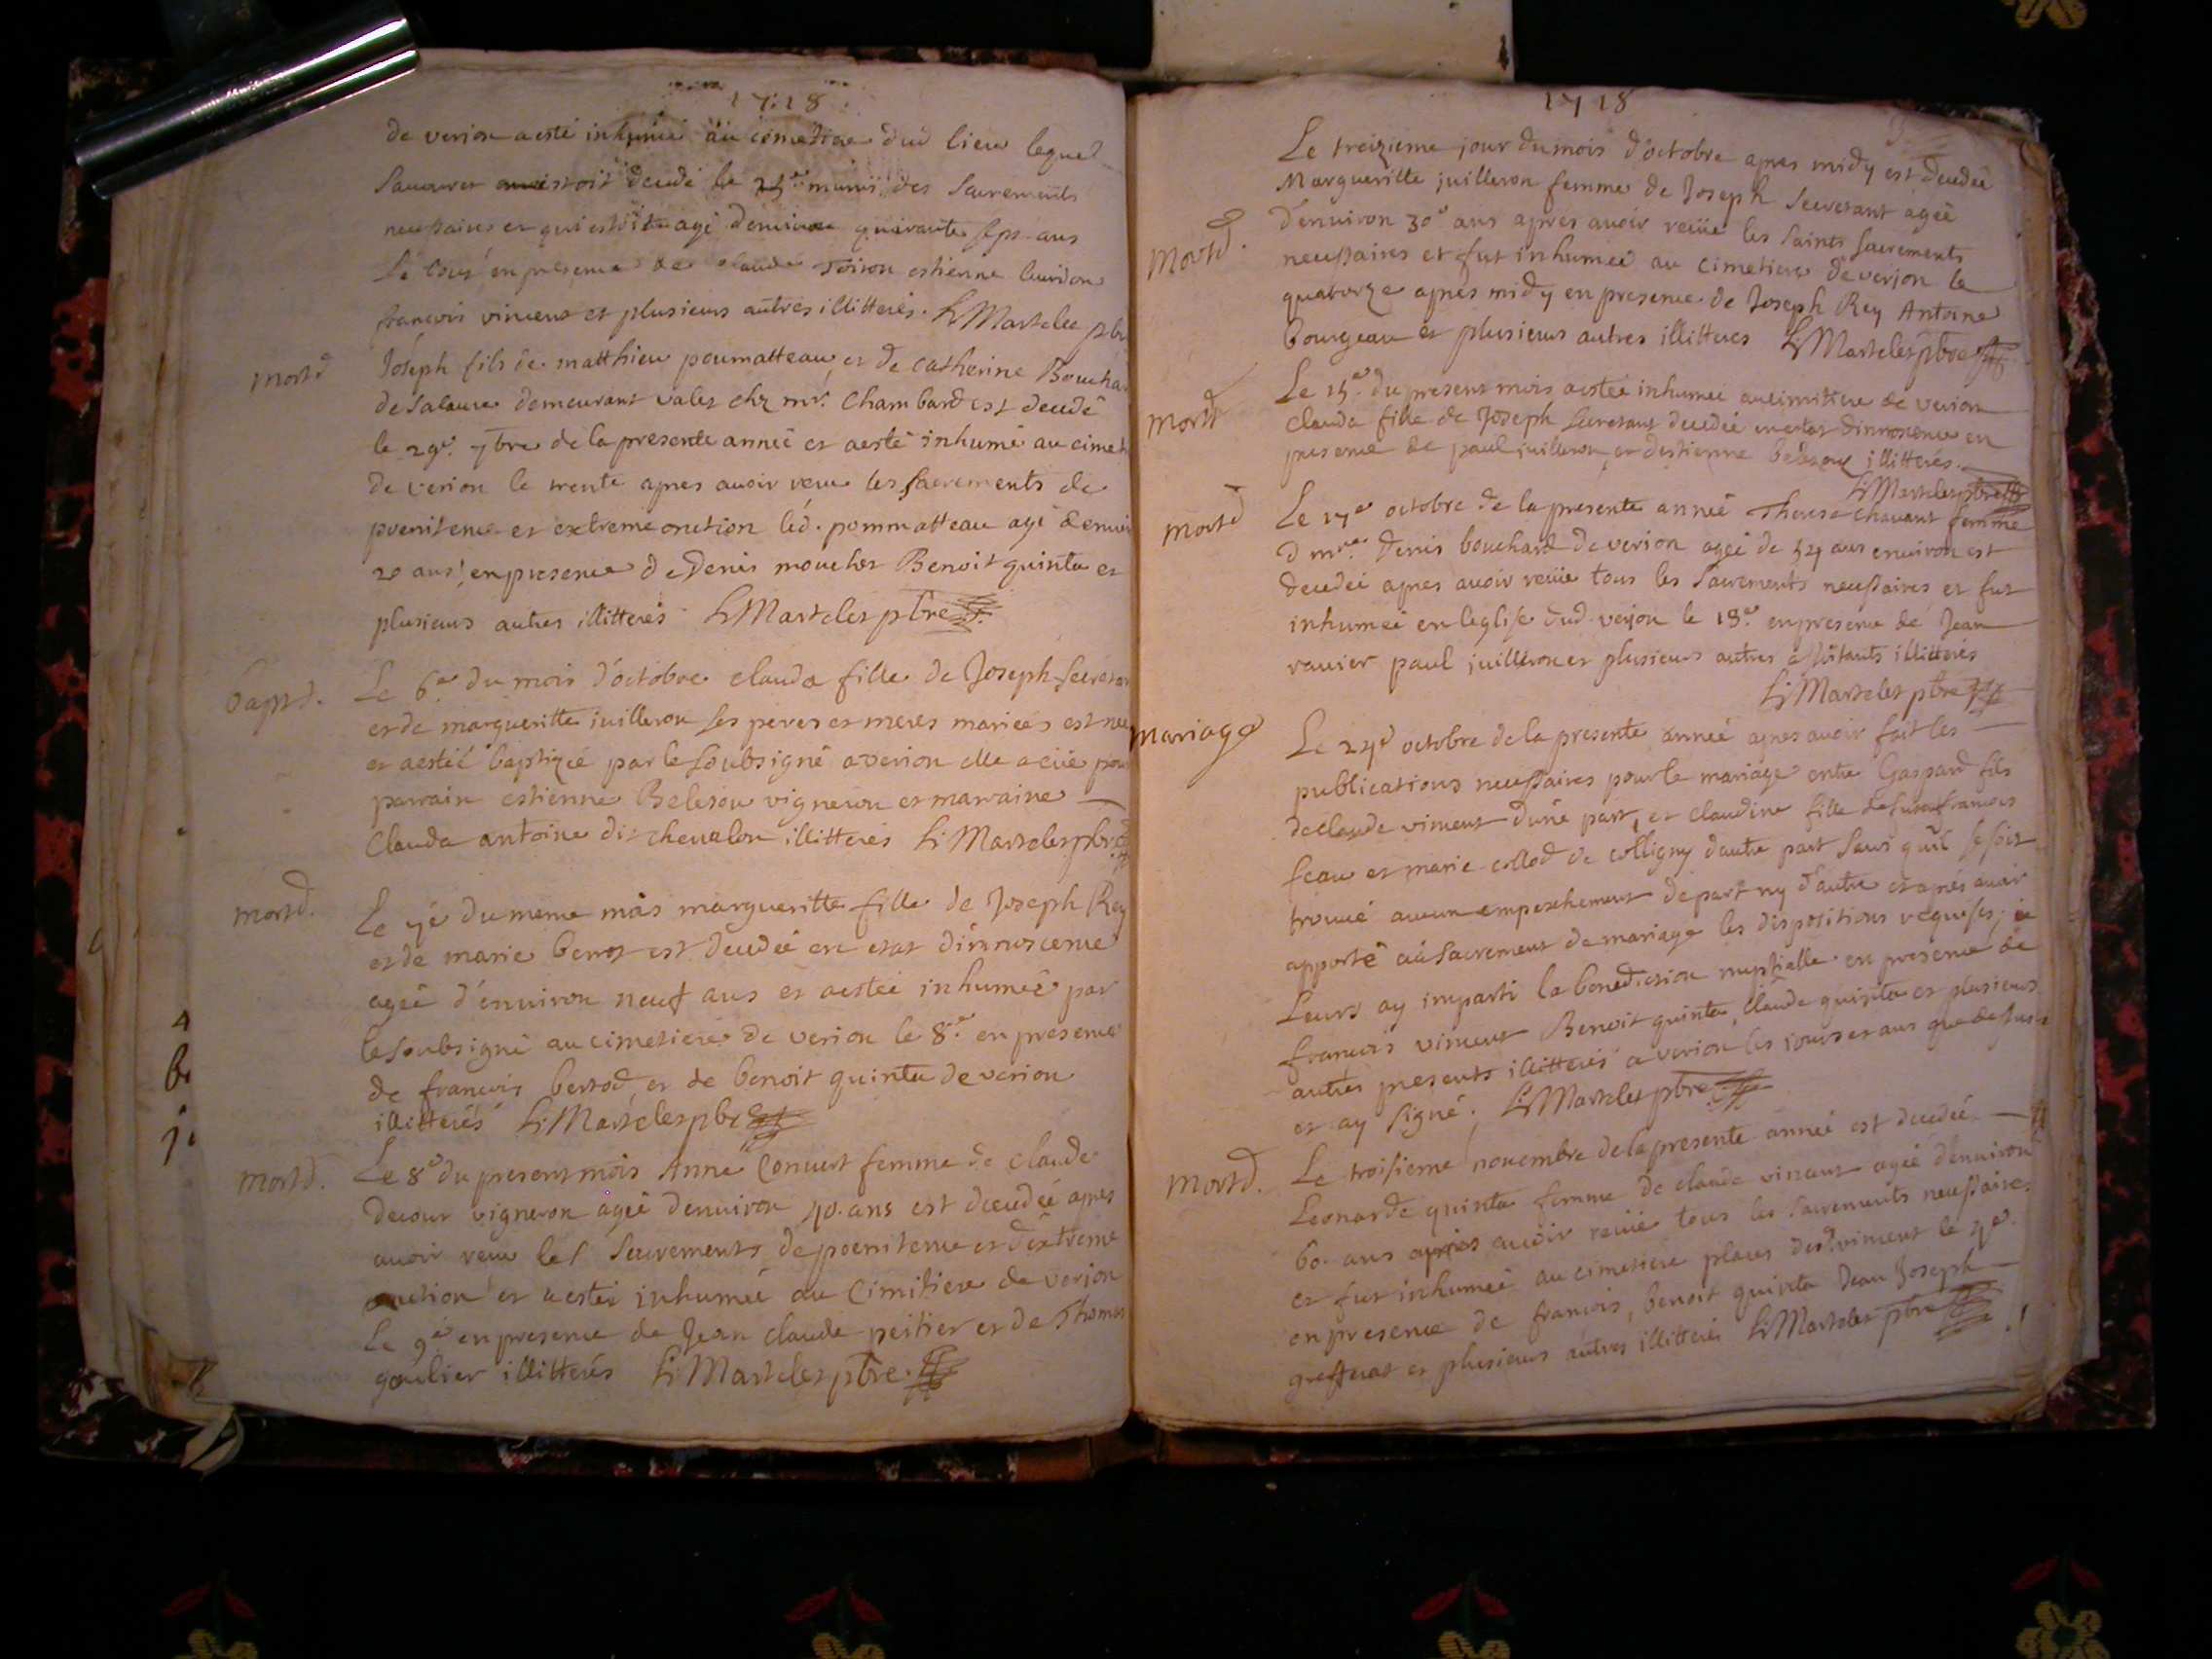 1718
de verion a esté inhumé au cimetiere dud lieu lequel
estoit decedé le munis des Sacrements
necessaires et qui estoit agé denviron quarante sept ans
Le tout en presence de claude Poison estienne
francois vincent et plusieurs autres illitterés. Marteles pbr
mort
Joseph fils de matthieu poumatteau et de catherine Boucha
de Salavre demeurant valet chz mr. Chambard est decedé
le 29e. 7bre de la presente anneé et aesté inhumé au cimet
de verion le trente apres avoir receu les sacrements de
poenitence et extreme onction led. pommatteau agé denvi
20 ans, en presence de Denis mouchet Benoit quinta et
plusieurs autres illitterés Marteles pbre
bapt.
Le 6e du mois d'octobre clauda fille de Joseph
et de margueritte juilleron ses peres et meres mariées est neé
et aesteé baptizeé par le soubsigné a verion elle a eüe pour
parrain estienne Beleson vigneron et marraine
Clauda antoine dit chevalon illitterés Marteles pbr
mort.
Le 7e du meme mois margueritte fille de Joseph Rey
et de marie benot est decedeé en estat d'innoscence
ageé d'environ neuf ans et aesteé inhumeé par
le soubsigné au cimetiere de verion le 8e. en presence
de francois bertod et de benoit quinta de verion
illitterés Marteles pbr
mort.
Le 8e du present mois Anne Convert femme de claude
decour vigneron ageé denviron 40. ans est decedeé apres
avoir receu les Sacrements de poenitence et d'extreme
onction et aesteé inhumeé au Cimitiere de verjon
Le 9e en presence de Jean claude peitier et de Thomas
goulier illitterés Marteles pbre.
1718
Le treizieme jour du mois d'octobre apres midy est decedeé
mort.
Margueritte juilleron femme de Joseph ageé
d'environ 30e ans apres avoir receüe les saints sacrements
necessaires et fut inhumeé au cimetiere de verjon le
quatorze apres midy en presence de Joseph Rey Antoine
bourgeau et plusieurs autres illitteres Marteles pbre
mort
Le 15e. du present mois aesteé inhumeé au cimitiere de verion
clauda fille de Joseph decedeé en estat d'innoscence en
presence de paul juilleron et destienne illitterés.
Marteles pbre
mort
Le 17e octobre de la presente anneé Therese chavant femme
d mre. Denis bouchard de verion ageé de 54 ans environ est
decedeé apres avoir receüe tous les sacrements necessaires et fut
inhumeé en leglise dud verjon le 18e. en presence de Jean
ravier paul juilleron et plusieurs autres assistants illitterés
Marteles pbre
mariage
Le 24e octobre de la presente anneé apres avoir fait les
publications necessaires pour le mariage entre Gaspard fils
de claude vincent dune part, et claudine fille de francois
feau et marie collod de colligny dautre part sans qu'il se soit
trouvé aucun empeschement de part ny d'autre et apres avoir
apporté au sacrement de mariage les dispositions requises, je
Leurs ay imparti la benediction nuptielle en presence de
francois vincent Benoit quinta, claude quinta et plusieurs
autres presents illitterés a verion les jours et ans que dessus
et ay signé. Marteles pbre
mort.
Le troisieme novembre de la presente anneé est decedeé
Leonarde quinta femme de claude vincent ageé denviron
60. ans apres avoir receüe tous les sacrements necessaires
et fut inhumeé au cimetiere places desd. vincent le 4e.
en presence de francois, benoit quinta Jean Joseph
grefferat et plusieurs autres illitterés Marteles pbre